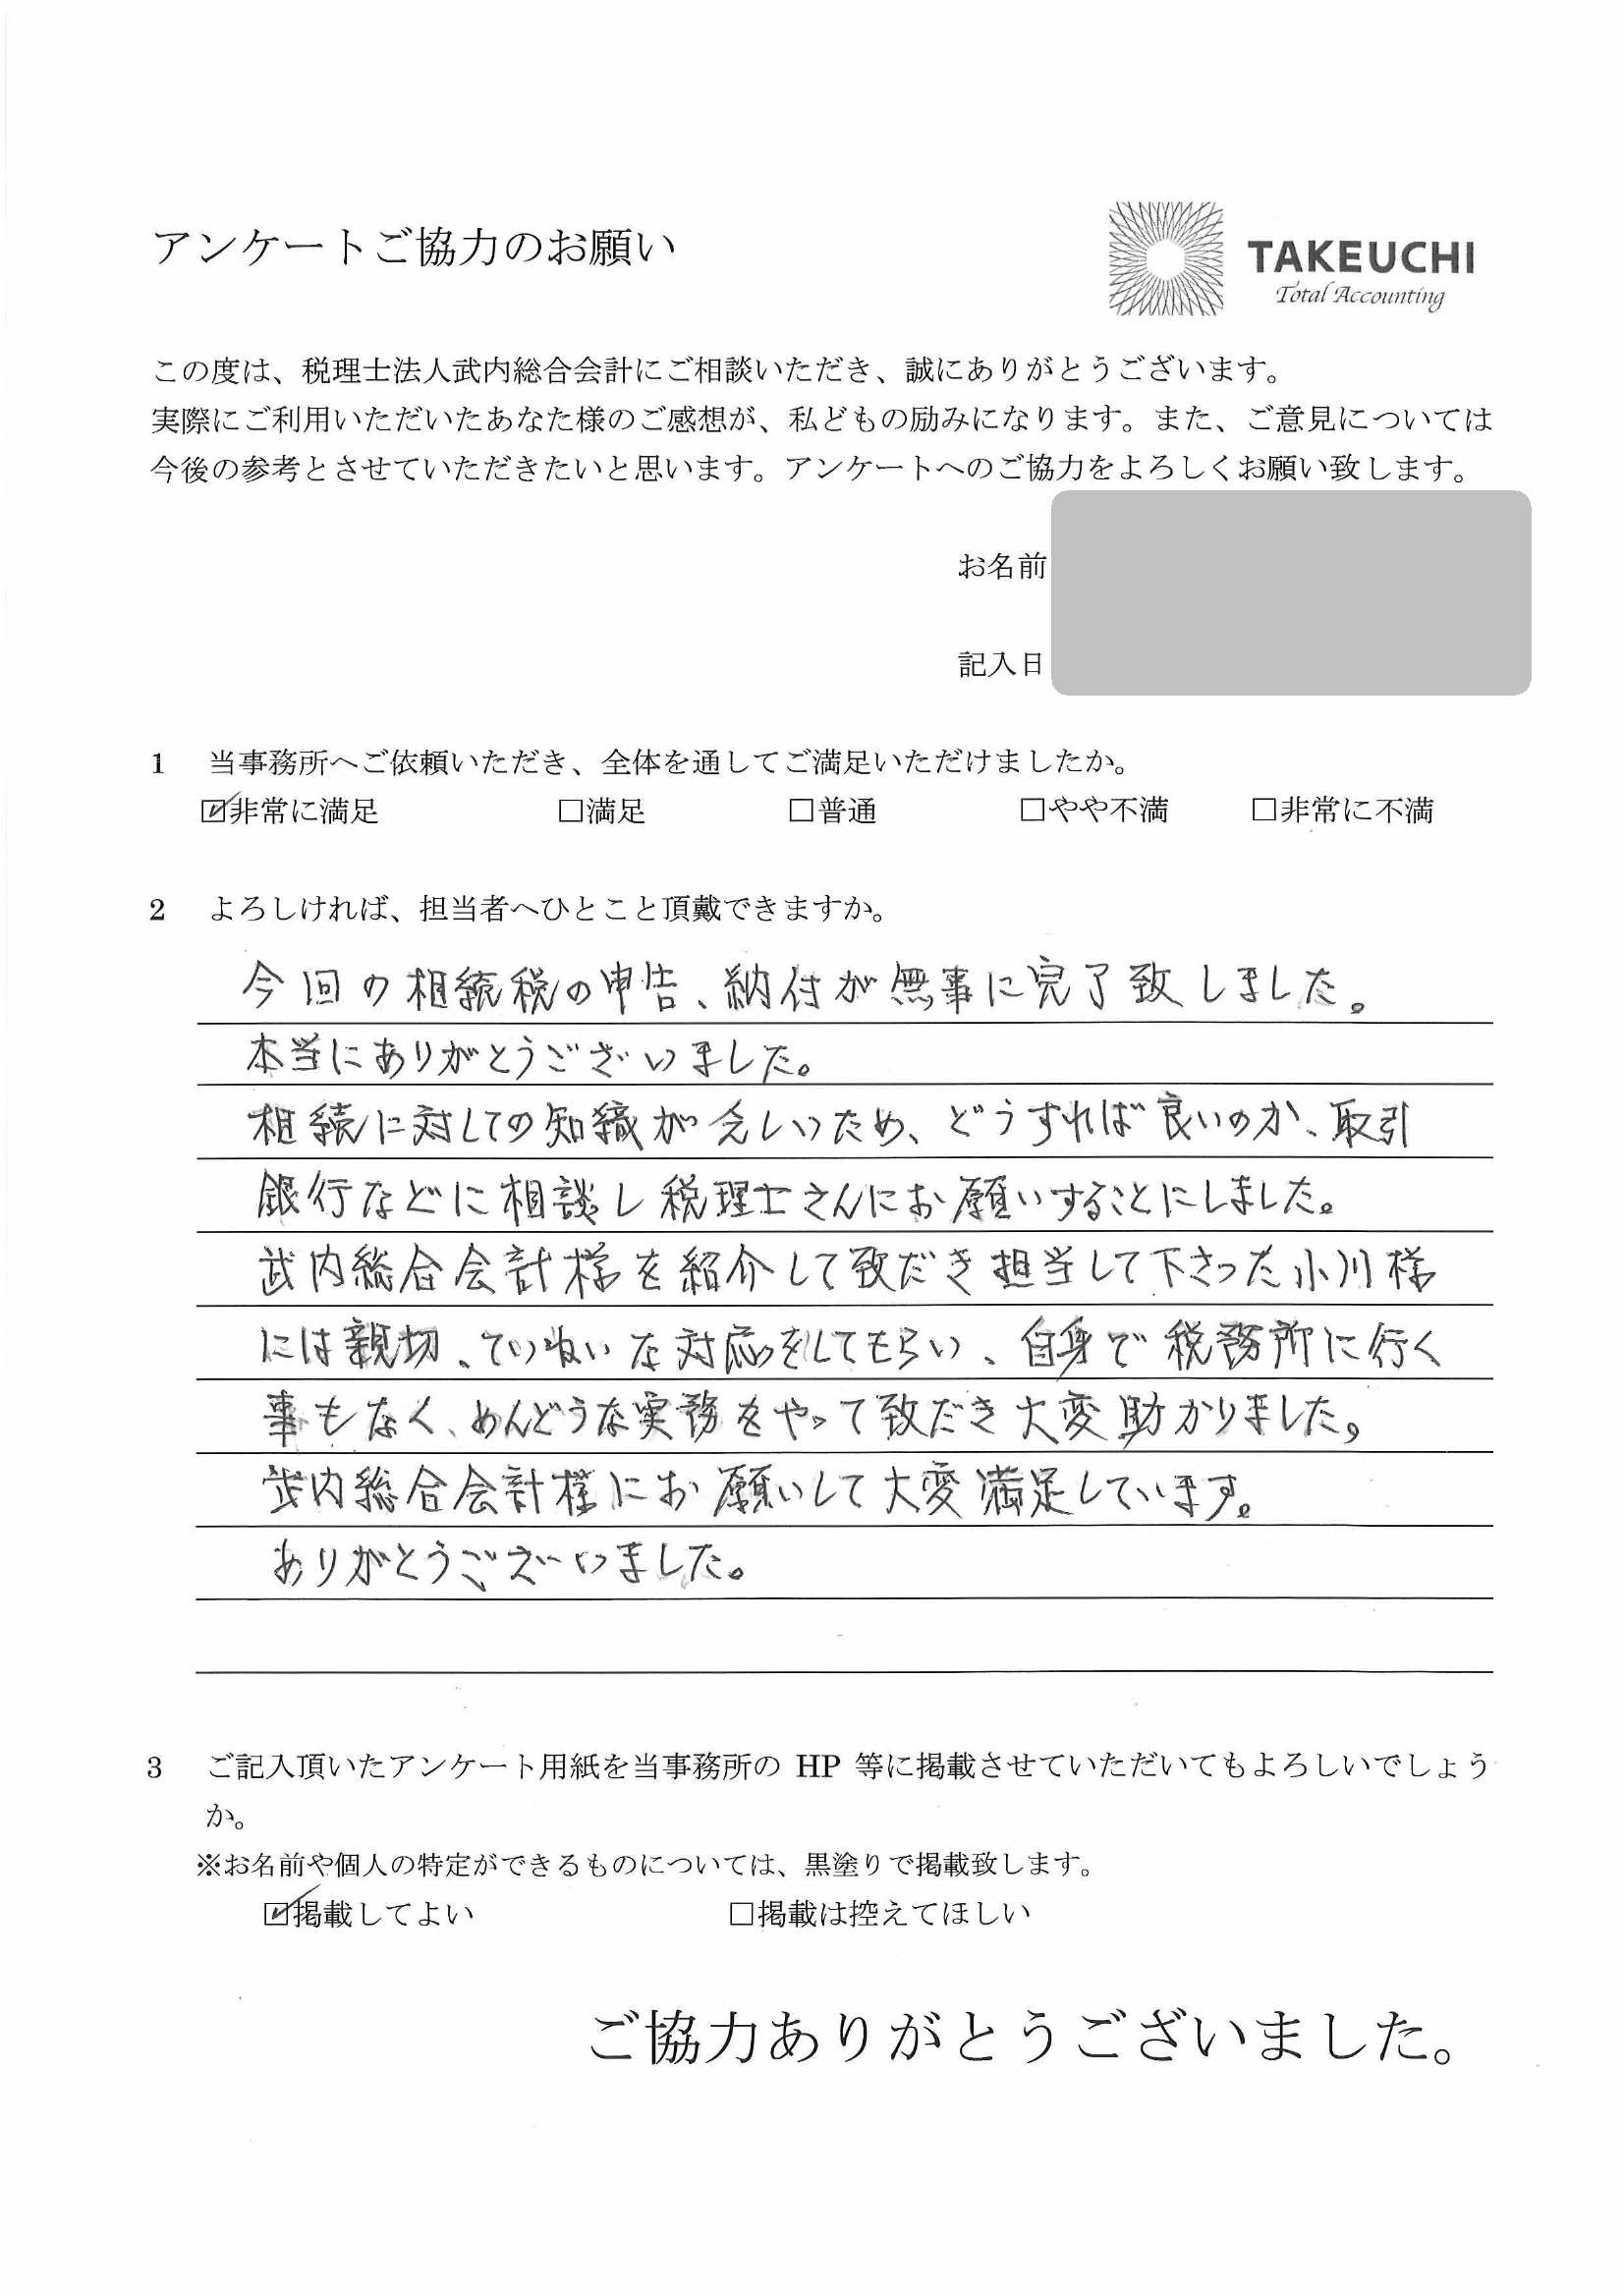 アンケートご協力のお願い
TAKEUCHI
Total Accounting
この度は、税理士法人武内総合会計にご相談いただき、誠にありがとうございます。
実際にご利用いただいたあなた様のご感想が、私どもの励みになります。また、ご意見については
今後の参考とさせていただきたいと思います。アンケートへのご協力をよろしくお願い致します。
お名前
記入日
1 当事務所へご依頼いただき、全体を通してご満足いただけましたか。
☑非常に満足 □満足 □普通 □やや不満 □非常に不満
2 よろしければ、担当者へひとこと頂戴できますか。
今回の相続税の申告、納付が無事に完了致しました。
本当にありがとうございました。
相続に対しての知識が乏しいため、どうすれば良いのか、取引
銀行などに相談し税理士さんにお願いすることにしました。
武内総合会計様を紹介して致だき担当して下さった小川様
には親切、ていねいな対応をしてもらい、自身で税務所に行く
事もなく、めんどうな実務をやって致だき大変助かりました。
武内総合会計様にお願いして大変満足しています。
ありがとうございました。
3 ご記入頂いたアンケート用紙を当事務所の HP 等に掲載させていただいてもよろしいでしょう
か。
※お名前や個人の特定ができるものについては、黒塗りで掲載致します。
☑掲載してよい □掲載は控えてほしい
ご協力ありがとうございました。